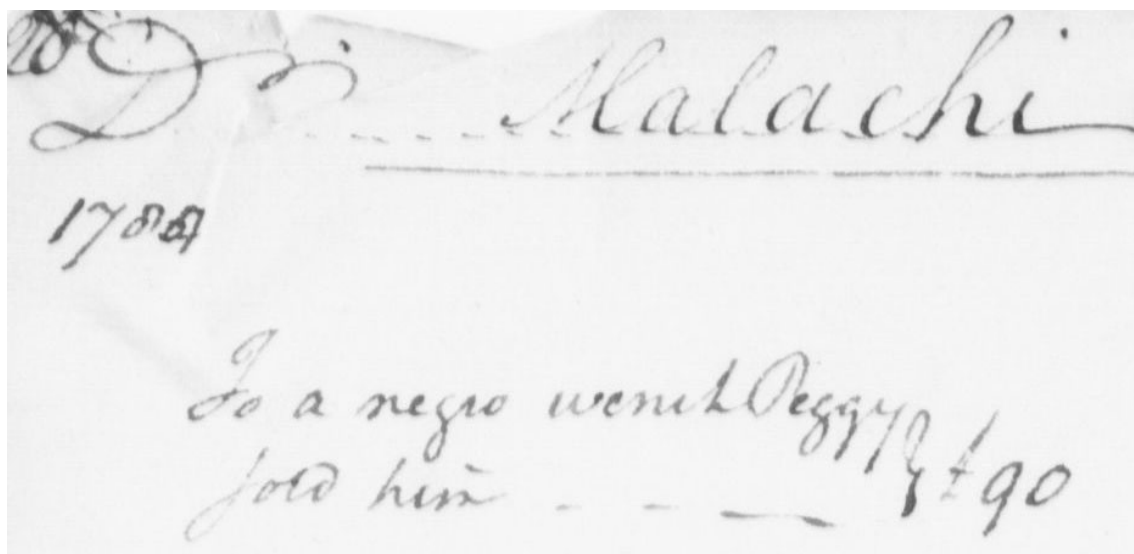 Dr Malachi
1788
To a negro wench Peggy
sold him £90